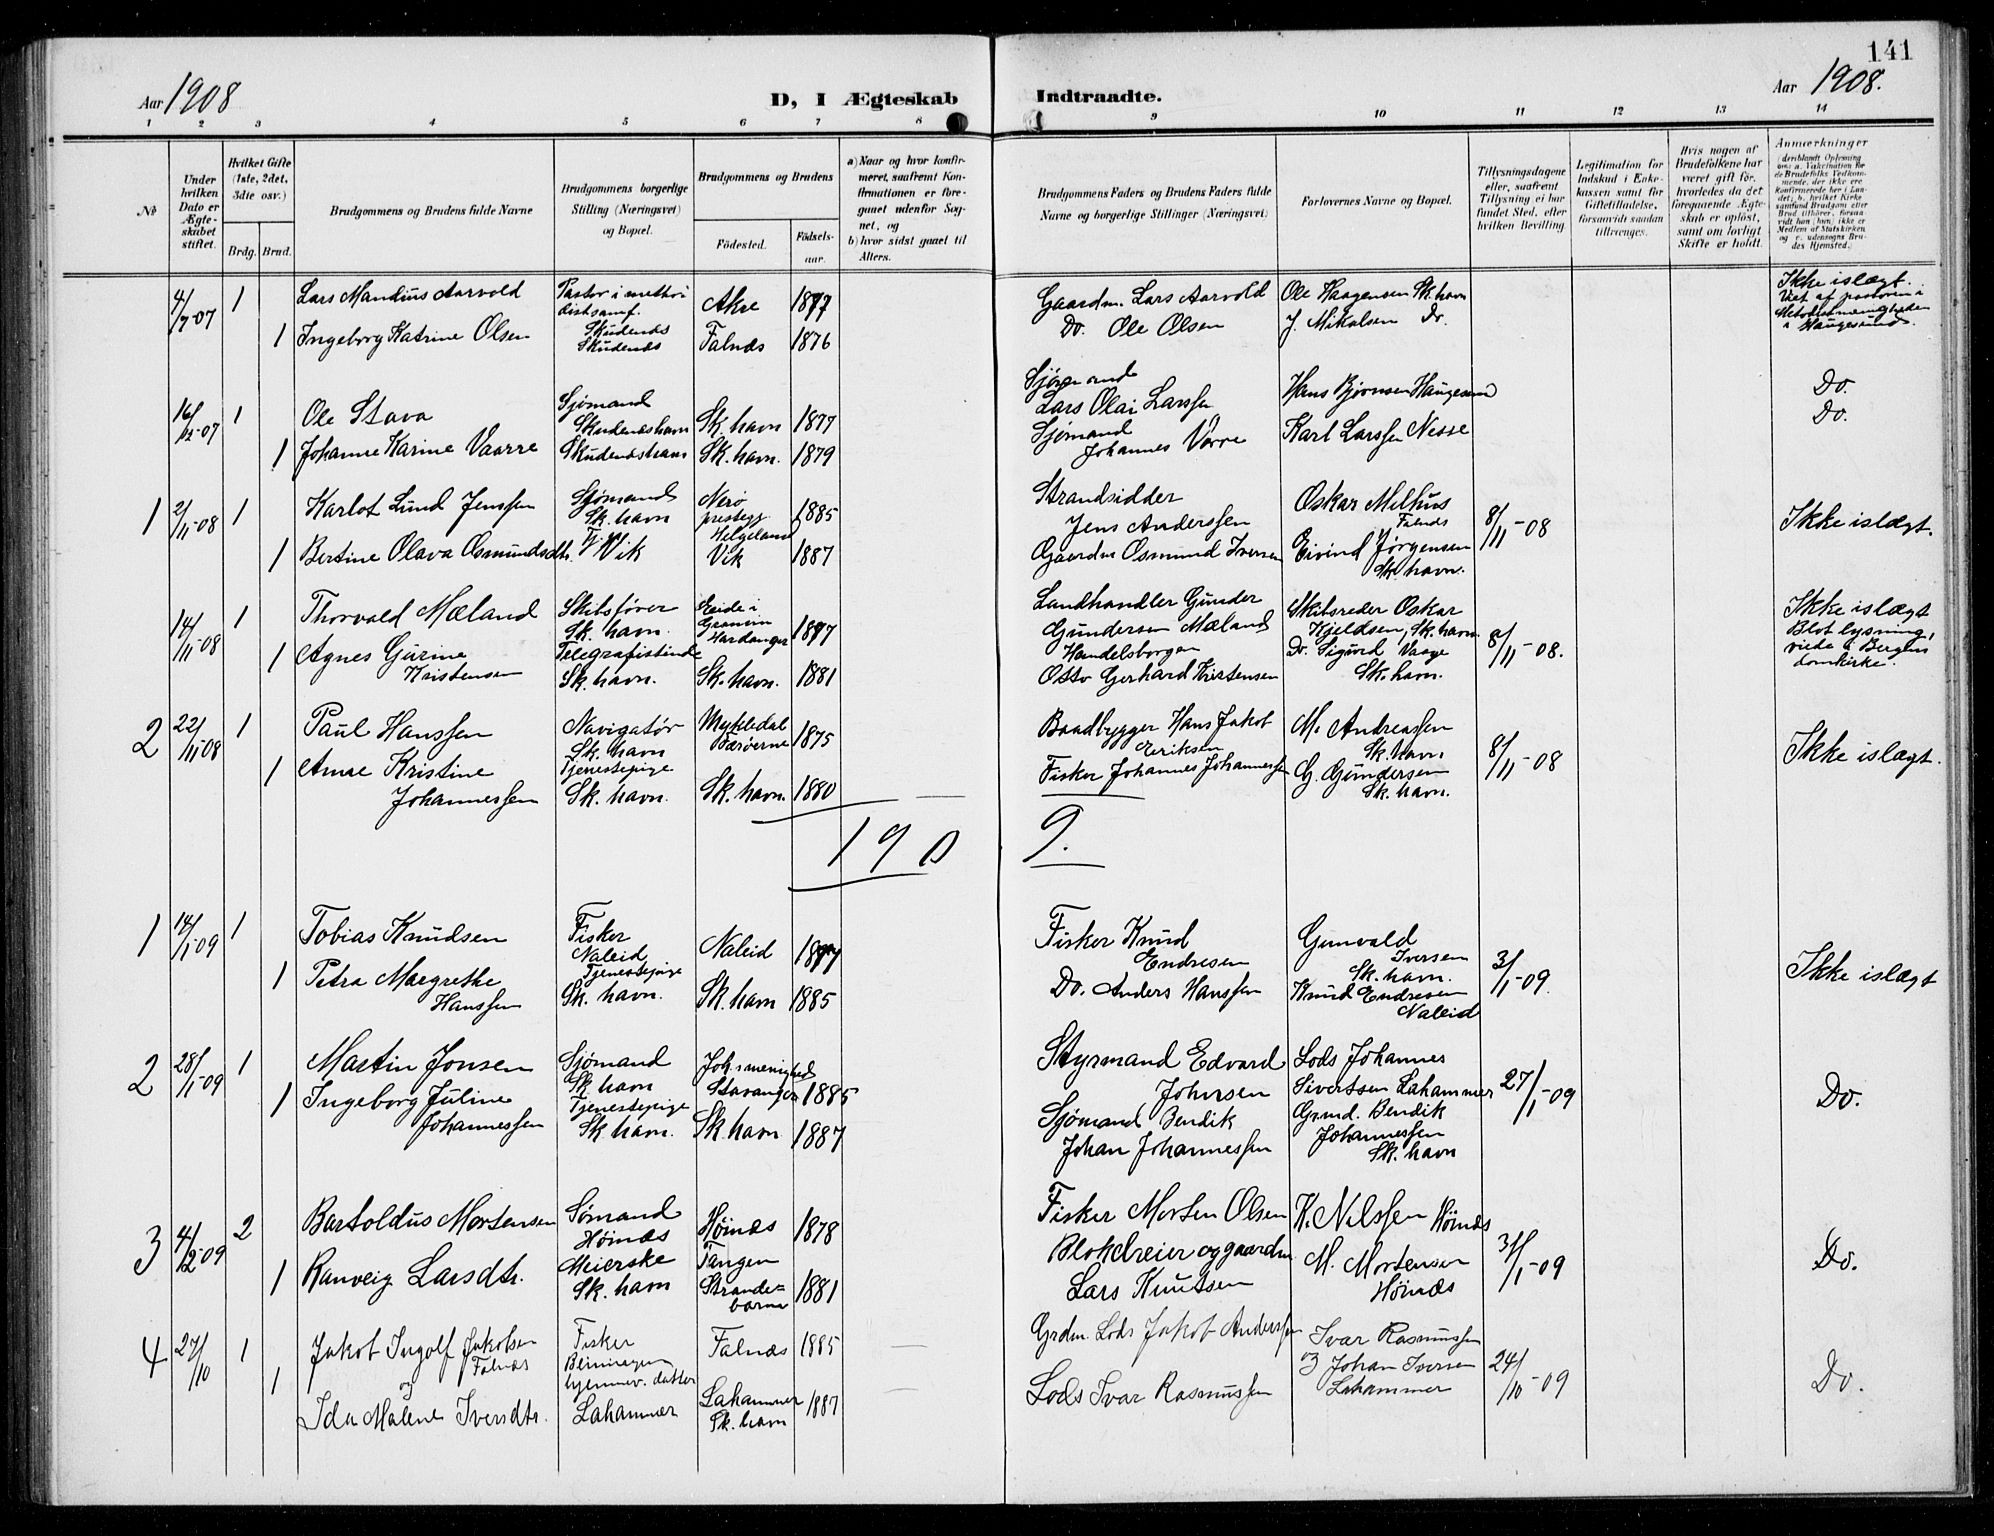 141
Aar 1908
D, I Ægteskab
Indtraadte.
Aar 1908.
1 2 3 4 5 6 7 8 9 10 11 12 13 14
No
Under hvilken Dato er Ægteskabet stiftet.
Hvilket Gifte (1ste, 2det, 3dte osv.)
Brdg. Brud.
Brudgommens og Brudens fulde Navne
Brudgommens borgerlige Stilling (Næringsvei) og Bopæl.
Brudgommens og Brudens
Födested.
Födselsaar.
a) Naar og hvor konfirmeret, saafremt Konfirmationen er foregaaet udenfor Sognet, og
b) hvor sidst gaaet til Alters.
Brudgommens Faders og Brudens Faders fulde Navne og borgerlige Stillinger (Næringsvei)
Forlovernes Navne og Bopæl.
Tillysningsdagene eller, saafremt Tillysning ei har fundet Sted, efter hvilken Bevilling.
Legitimation for Indskud i Enkekassen samt for Giftetilladelse, forsaavidt saadan tiltrænges.
Hvis nogen af Brudefolkene har været gift för, hvorledes da det foregaaende Ægteskab er oplöst, samt om lovligt Skifte er holdt.
Anmærkninger
4/7-07 1
Lars Mandius Aarvold
Pastor i methodistsamf.
Skudenæs
Akre 1877
Gaardm. Lars Aarvold
Ole Haagensen Sk.havn
Ikke islægt.
Viet af pastoren i
Methodistmenigheden
i Haugesund.
1 Ingeborg Katrine Olsen
Skudenæs
Falnæs 1876
Do. Ole Olsen
J. Mikalsen Do.
16/12-07 1
Ole Stava
Sjømand
Skudenæshavn
Sk. havn 1877
Sjømand
Lars Olai Larssen
Hans Bjørnsen Haugesund
Do.
1 Johanne Karine Vaarre
Skudenæshavn
Sk. havn. 1879
Sjømand
Johannes Vorre
Karl Larssen Nesse
Do.
1 2/11-08 1
Karlot Lund Jenssen
Sjømand
Sk. havn
Nerø
prestegj.
Helgeland 1885
Strandsidder
Jens Anderssen
Oskar Melhus
Falnæs
8/11-08
Ikke islægt.
1 Bertine Olava Osmundsdtr.
Vik
Vik 1887
Gaardm Osmund Iversen
Eivind Jørgensen
Sk. havn.
14/11-08 1
Thorvald Mæland
Skibsfører
Sk. havn.
Eide i
Granvin
Hardanger 1877
Landhandler Gunder
Gundersen Mæland
Skibsreder Oskar
Kjeldsen, Sk.havn
8/11-08.
Ikke islægt
Blot lysning,
viede i Bergens
domkirke.
1 Agnes Gurine
Kristensen
Telegrafistinde
Sk. havn.
Sk. havn. 1881
Handelsborger
Otto Gerhard Kristensen
Do. Sigurd Vaage
Sk. havn.
2 22/11-08 1
Paul Hanssen
Navigatør
Sk. havn
Mykledal
Færøerne 1875
Baadbygger Hans Jakob
Eriksen
M. Andreassen
Sk. havn
8/11-08
Ikke islægt.
1 Anne Kristine
Johannessen
Tjenestepige
Sk. havn.
Sk. havn. 1880
Fisker Johannes Johannessen
G. Gundersen
Sk. havn.
190 9.
1 14/1-09 1
Tobias Knudsen
Fisker
Naleid
Naleid 1877
Fisker Knud
Endresen
Gunvald
Iversen
Sk. havn.
3/1-09.
Ikke islægt
1 Petra Margrethe
Hanssen
Tjenestepige
Sk. havn.
Sk. havn 1885
Do. Anders Hanssen
Knud Endresen
Naleid
2 28/1-09 1
Martin Jonsen
Sjømand
Sk. havn
Joh.s menighed
Stavanger 1885
Styrmand Edvard
Johnsen
Lods Johannes
Sivertsen Lahammer
27/1-09
Do.
1 Ingeborg Juline
Johannessen
Tjenestepige
Sk. havn.
Sk. havn 1887
Sjømand Bendik
Johan Johannessen
Grmd. Bendik
Johannessen
Sk. havn
3 4/2-09 2
Bartoldus Mortensen
Sømand
Høinæs
Høinæs 1878
Fisker Morten Olsen
K. Nilssen Høinæs
31/1-09
Do.
1 Ranveig Larsdtr.
Meierske
Sk. havn
Tangen
Strandebarm 1881
Blokdreier og gaardm.
Lars Knutsen
M. Mortensen
Høinæs
4 27/10 1
Jakob Ingolf Jakobsen
Falnæs
Fisker
Falnæs 1885
Grdm. Lods Jakob Anderssen
Ivar Rasmussen
og Johan Iversen
Lahammer
24/10-09
Do.
1 og
Ida Malene Iversdtr.
hjemmev. datter
Lahammer
Lahammer
Sk. havn 1887
Lods Ivar Rasmussen